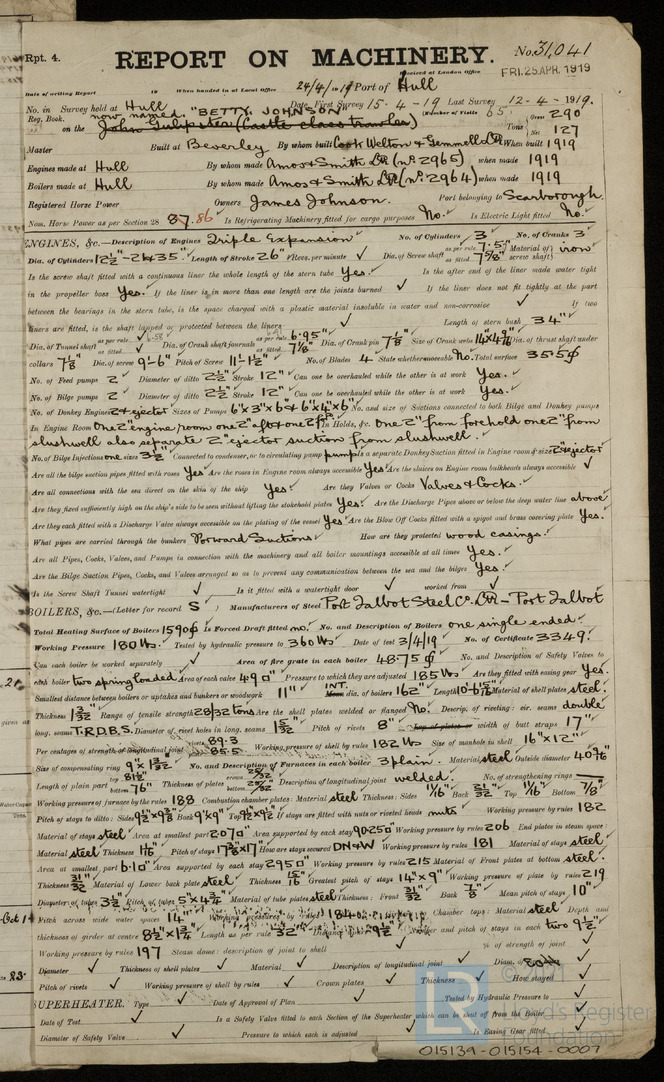 Rpt. 4.
REPORT ON MACHINERY.
No. 31,041
Received at London Office
FRI. 25 APR. 1919
Date of writing Report 19 When handed in at Local Office 24/4/ 19 Port of Hull
No. in Survey held at Hull Date, First Survey 15-4-19 Last Survey 12-4-1919.
Reg. Book. now named "BETTY JOHNSON" (Number of Visits 65
on the John Gulipster (Castle class trawler) Tons Gross 290 Net 127
Master Built at Beverley By whom built Cook Welton & Gemmell Ld When built 1919
Engines made at Hull By whom made Amos & Smith Ld (no. 2965) when made 1919
Boilers made at Hull By whom made Amos & Smith Ld (no. 2964) when made 1919
Registered Horse Power Owners James Johnson. Port belonging to Scarborough.
Nom. Horse Power as per Section 28 87. 86 Is Refrigerating Machinery fitted for cargo purposes No. Is Electric Light fitted No.
ENGINES, &c.—Description of Engines Triple Expansion No. of Cylinders 3 No. of Cranks 3
Dia. of Cylinders Length of Stroke 26" Revs. per minute Dia. of Screw shaft as per rule 7.5" as fitted 7⅞" Material of screw shaft iron
Is the screw shaft fitted with a continuous liner the whole length of the stern tube Yes. Is the after end of the liner made water tight
in the propeller boss Yes. If the liner is in more than one length are the joints burned If the liner does not fit tightly at the part
between the bearings in the stern tube, is the space charged with a plastic material insoluble in water and non-corrosive If two
liners are fitted, is the shaft lapped or protected between the liners Length of stern bush 34"
Dia. of Tunnel shaft as per rule as fitted Dia. of Crank shaft journals as per rule 6.95" as fitted 7⅛" Dia. of Crank pin 7⅛" Size of Crank webs Dia. of thrust shaft under
collars 7⅛" Dia. of screw 9-6" Pitch of Screw 11-1½" No. of Blades 4 State whether moveable No. Total surface 35.5
No. of Feed pumps 2 Diameter of ditto 2½" Stroke 12" Can one be overhauled while the other is at work Yes.
No. of Bilge pumps 2 Diameter of ditto 2½" Stroke 12" Can one be overhauled while the other is at work Yes.
No. of Donkey Engines 2 & ejector Sizes of Pumps 6"x3"x6" & 6"x4"x6" No. and size of Suctions connected to both Bilge and Donkey pumps
In Engine Room One 2" engine room one 2" aft & one 2" In Holds, &c. One 2" from forehold one 2" from
slushwell also separate 2" ejector suction from slushwell.
No. of Bilge Injections one sizes 3½" Connected to condenser, or to circulating pump pump Is a separate Donkey Suction fitted in Engine room & size 2" ejector
Are all the bilge suction pipes fitted with roses Yes Are the roses in Engine room always accessible Yes Are the sluices on Engine room bulkheads always accessible
Are all connections with the sea direct on the skin of the ship Yes. Are they Valves or Cocks Valves & Cocks.
Are they fixed sufficiently high on the ship's side to be seen without lifting the stokehold plates Yes. Are the Discharge Pipes above or below the deep water line above
Are they each fitted with a Discharge Valve always accessible on the plating of the vessel Yes. Are the Blow Off Cocks fitted with a spigot and brass covering plate Yes.
What pipes are carried through the bunkers Forward Suctions How are they protected wood casings.
Are all Pipes, Cocks, Valves, and Pumps in connection with the machinery and all boiler mountings accessible at all times Yes.
Are the Bilge Suction Pipes, Cocks, and Valves arranged so as to prevent any communication between the sea and the bilges Yes.
Is the Screw Shaft Tunnel watertight Is it fitted with a watertight door worked from
BOILERS, &c.—(Letter for record S ) Manufacturers of Steel Port Talbot Steel Co. Ltd - Port Talbot
Total Heating Surface of Boilers 1590 Is Forced Draft fitted no. No. and Description of Boilers one single ended
Working Pressure 180 lbs. Tested by hydraulic pressure to 360 lbs Date of test 3/4/19 No. of Certificate 3349.
Can each boiler be worked separately Area of fire grate in each boiler 48.75 No. and Description of Safety Valves to
each boiler two spring loaded Area of each valve 4.90 Pressure to which they are adjusted 185 lbs Are they fitted with easing gear Yes.
Smallest distance between boilers or uptakes and bunkers or woodwork 11" INT. dia. of boilers 162" Length Material of shell plates steel.
Thickness Range of tensile strength 28/32 tons Are the shell plates welded or flanged No. Descrip. of riveting: cir. seams double
long. seams T.R.D.B.S. Diameter of rivet holes in long. seams Pitch of rivets 8" width of butt straps 17"
Per centages of strength of longitudinal joint rivets 89.3 plate 85.5 Working pressure of shell by rules 182 lbs Size of manhole in shell 16"x12"
Size of compensating ring No. and Description of Furnaces in each boiler 3 plain. Material steel Outside diameter
Length of plain part top 81½" bottom 76" Thickness of plates crown bottom Description of longitudinal joint welded. No. of strengthening rings
Working pressure of furnace by the rules 188 Combustion chamber plates: Material steel Thickness: Sides 11/16" Back 21/32" Top 11/16" Bottom 7/8"
Pitch of stays to ditto: Sides Back 9"x9" Top If stays are fitted with nuts or riveted heads nuts Working pressure by rules 182
Material of stays steel Area at smallest part 2.07 Area supported by each stay Working pressure by rules 206 End plates in steam space:
Material steel Thickness Pitch of stays How are stays secured DN&W Working pressure by rules 181 Material of stays steel
Area at smallest part 6.10 Area supported by each stay 295 Working pressure by rules 215 Material of Front plates at bottom steel.
Thickness 31/32 Material of Lower back plate steel Thickness 15/16 Greatest pitch of stays 14"x9" Working pressure of plate by rules 219
Diameter of tubes 3½ Pitch of tubes Material of tube plates steel Thickness: Front 31/32 Back 7/8 Mean pitch of stays 10"
Pitch across wide water spaces 14" Working pressures by rules 184 Chamber tops: Material steel Depth and
thickness of girder at centre Length as per rule 32" Distance apart 9½" Number and pitch of stays in each two 9½"
Working pressure by rules 197 Steam dome: description of joint to shell % of strength of joint
Diameter Thickness of shell plates Material Description of longitudinal joint Diam. of
Pitch of rivets Working pressure of shell by rules Crown plates Thickness How stayed
SUPERHEATER. Type Date of Approval of Plan Tested by Hydraulic Pressure to
Date of Test Is a Safety Valve fitted to each Section of the Superheater which can be shut off from the Boiler
Diameter of Safety Valve Pressure to which each is adjusted Is Easing Gear fitted
LR
Lloyd's Register
Foundation
015139-015154-0007